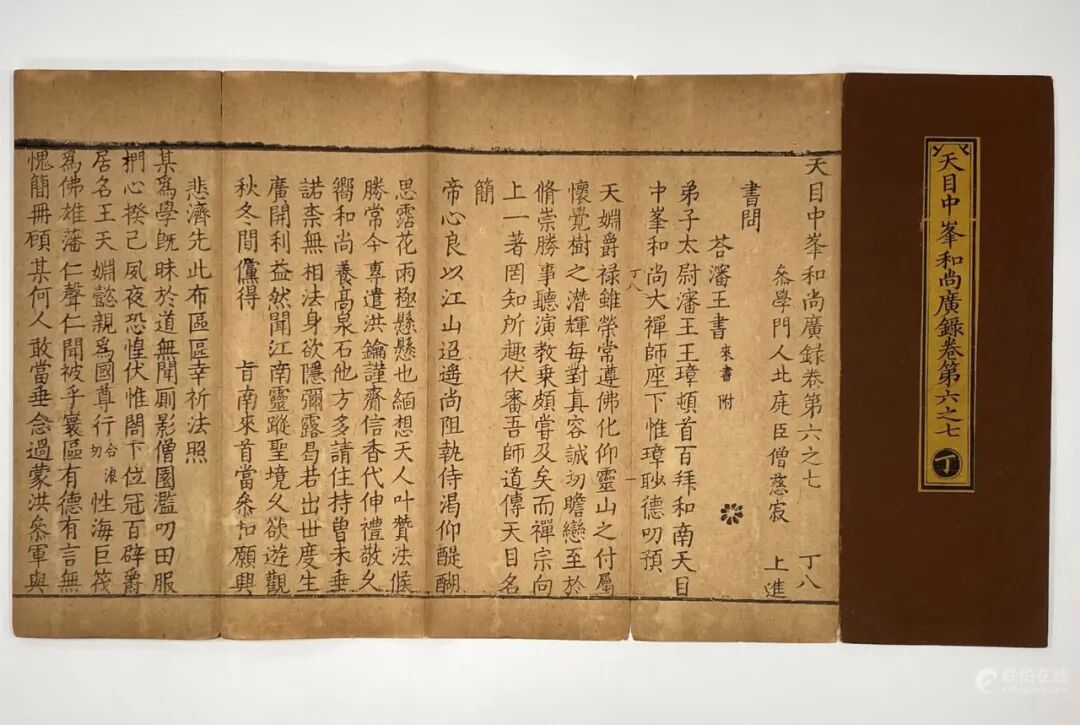 天目中峯和尚廣録卷第六之七
丁
天目中峯和尚廣録卷第六之七 丁八
叅學門人北庭臣僧慈寂 上進
書問
荅瀋王書 來書附
弟子太尉瀋王王璋頓首百拜和南天目
中峯和尚大禪師座下惟璋眇德叨預
丁八 一
天婣爵禄雖榮常遵佛化仰靈山之付屬
懷覺樹之潜輝每對真容誠切瞻戀至於
脩崇勝事聽演教乗頗嘗及矣而禪宗向
上一著罔知所趣伏審吾師道傳天目名
簡
帝心良以江山迢遙尚阻執侍渴仰醍醐
思霑花雨極懸懸也緬想天人叶贊法候
勝常今專遣洪鑰謹齎信香代伸禮敬久
嚮和尚養髙泉石他方多請住持曽未垂
諾柰無相法身欲隱彌露曷若出世度生
廣開利益然聞江南靈蹤聖境久欲遊觀
秋冬間儻得 旨南來首當叅扣願興
悲濟先此布區區幸祈法照
某爲學旣昧於道無聞厠影僧園濫叨田服
捫心揆己夙夜恐惶伏惟閤下位冠百辟爵
居名王天婣懿親爲國尊行 合浪切 性海巨筏
爲佛雄藩仁聲仁聞被乎寰區有德有言無
愧簡冊碩某何人敢當垂念過蒙洪叅軍與
联拍在线